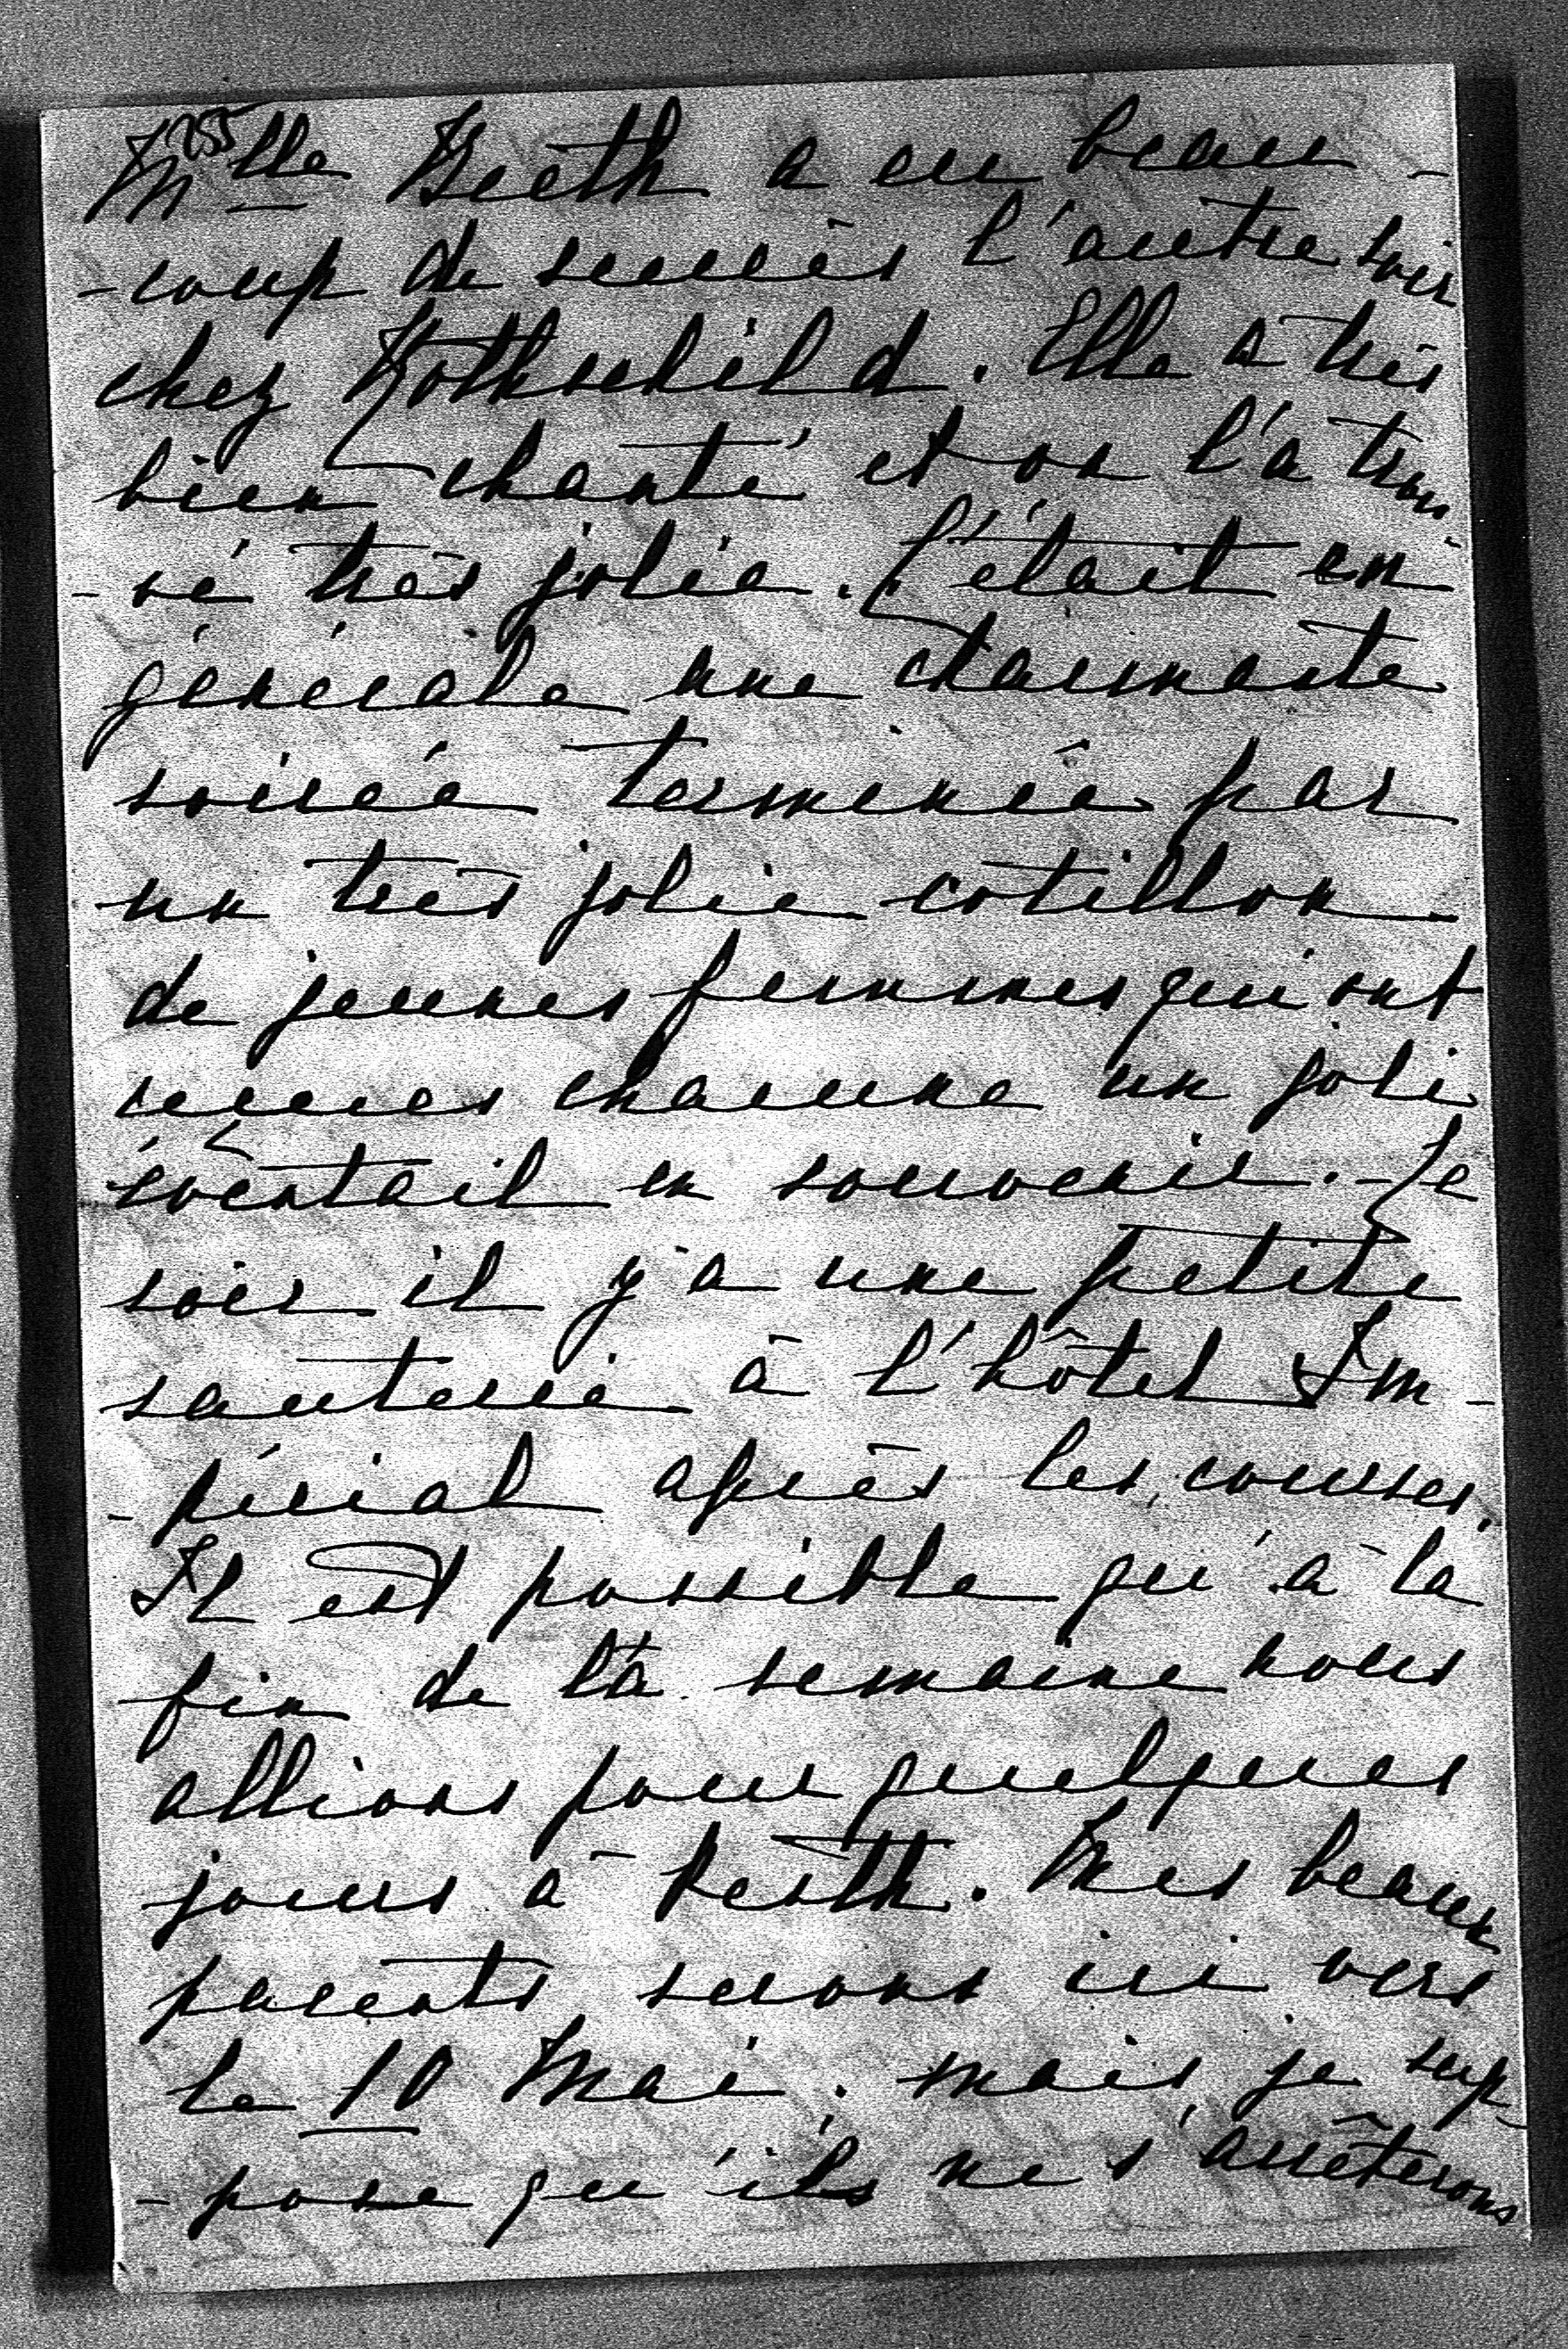 255
Mlle Greeth a eu beau-
-coup de succès l'autre soir
chez Rothschild. Elle a très
bien chanté et on l'a trou
-vé très jolie. C'était en
générale une charmante
soirée terminée par
un très jolie cotillon
de jeunes femmes qui ont
recues chacune un joli
éventail en souvenir. - Ce
soir il y'a une petite
sauterie à l'hôtel Im-
-périal après les courses.
Il est possible qu'à la
fin de la semaine nous
allions pour quelques
jours à Pesth. Mes beaux
parents serons ici vers
le 10 Mai, mais je sup-
-pose qu'ils ne s'arrêterons